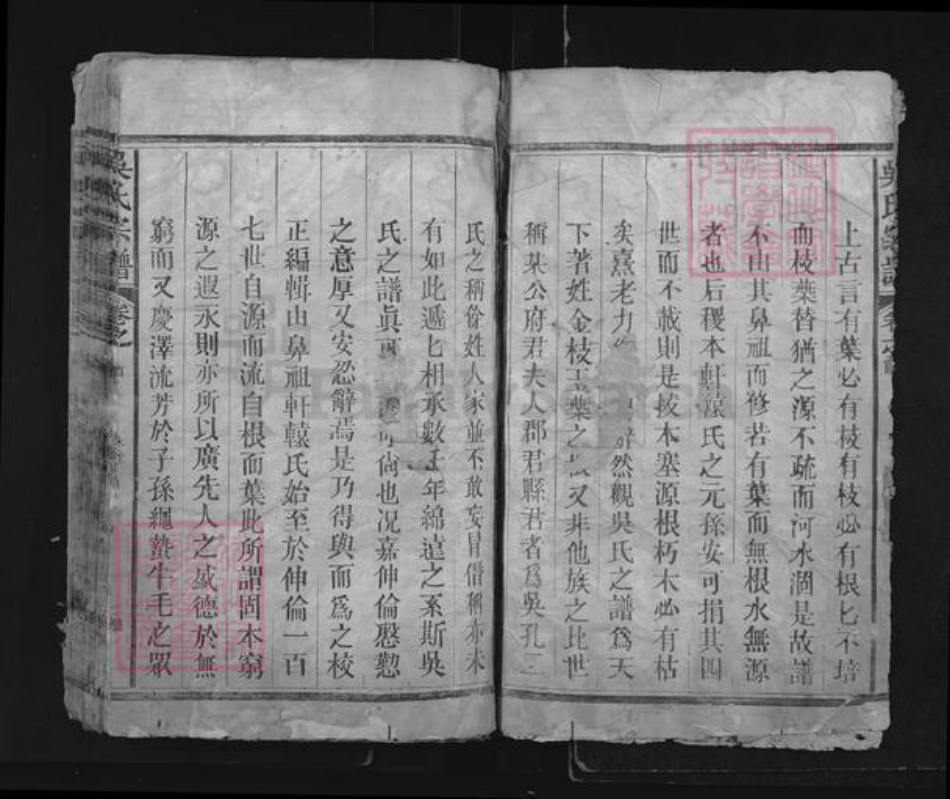 上古言有葉必有枝有枝必有根匕不培
而枝葉替猶之源不疏而河水涸是故譜
不由其鼻祖而修若有葉而無根水無源
者也后稷本軒轅氏之元孫安可捐其四
世而不載則是拔本塞源根朽木必有枯
矣熹老力 然觀吳氏之譜為天
下著姓金枝玉葉之 又非他族之比世
稱某公府君夫人郡君縣君者為吳孔二
氏之稱份姓人家並不敢妄冒僣稱亦未
有如此遞匕相承數千年綿遠之系斯吳
氏之譜眞可 尙也况嘉伸倫慇懃
之意厚又安忍辭焉是乃得與而為之校
正編輯由鼻祖軒轅氏始至於伸倫一百
七世自源而流自根而葉此所謂固本窮
源之遐永則亦所以廣先人之盛德於無
窮而又慶澤流芳於子孫繩蟄牛毛之眾
吳氏宗譜 卷之